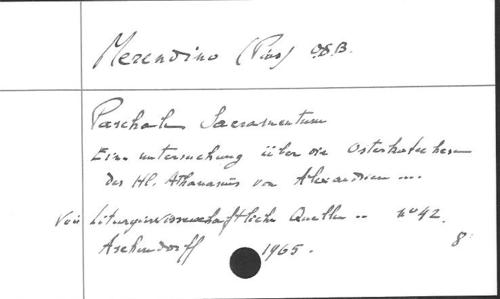 Merendino (Pius) O.S.B.
Paschale Sacramentum
Eine untersuchung über die Osterkatechese
des Hl. Athanasius von Alexandrien ...
Voir Liturgiewissenschaftliche Quellen .. n° 42.
Aschendorff 1965. 8°